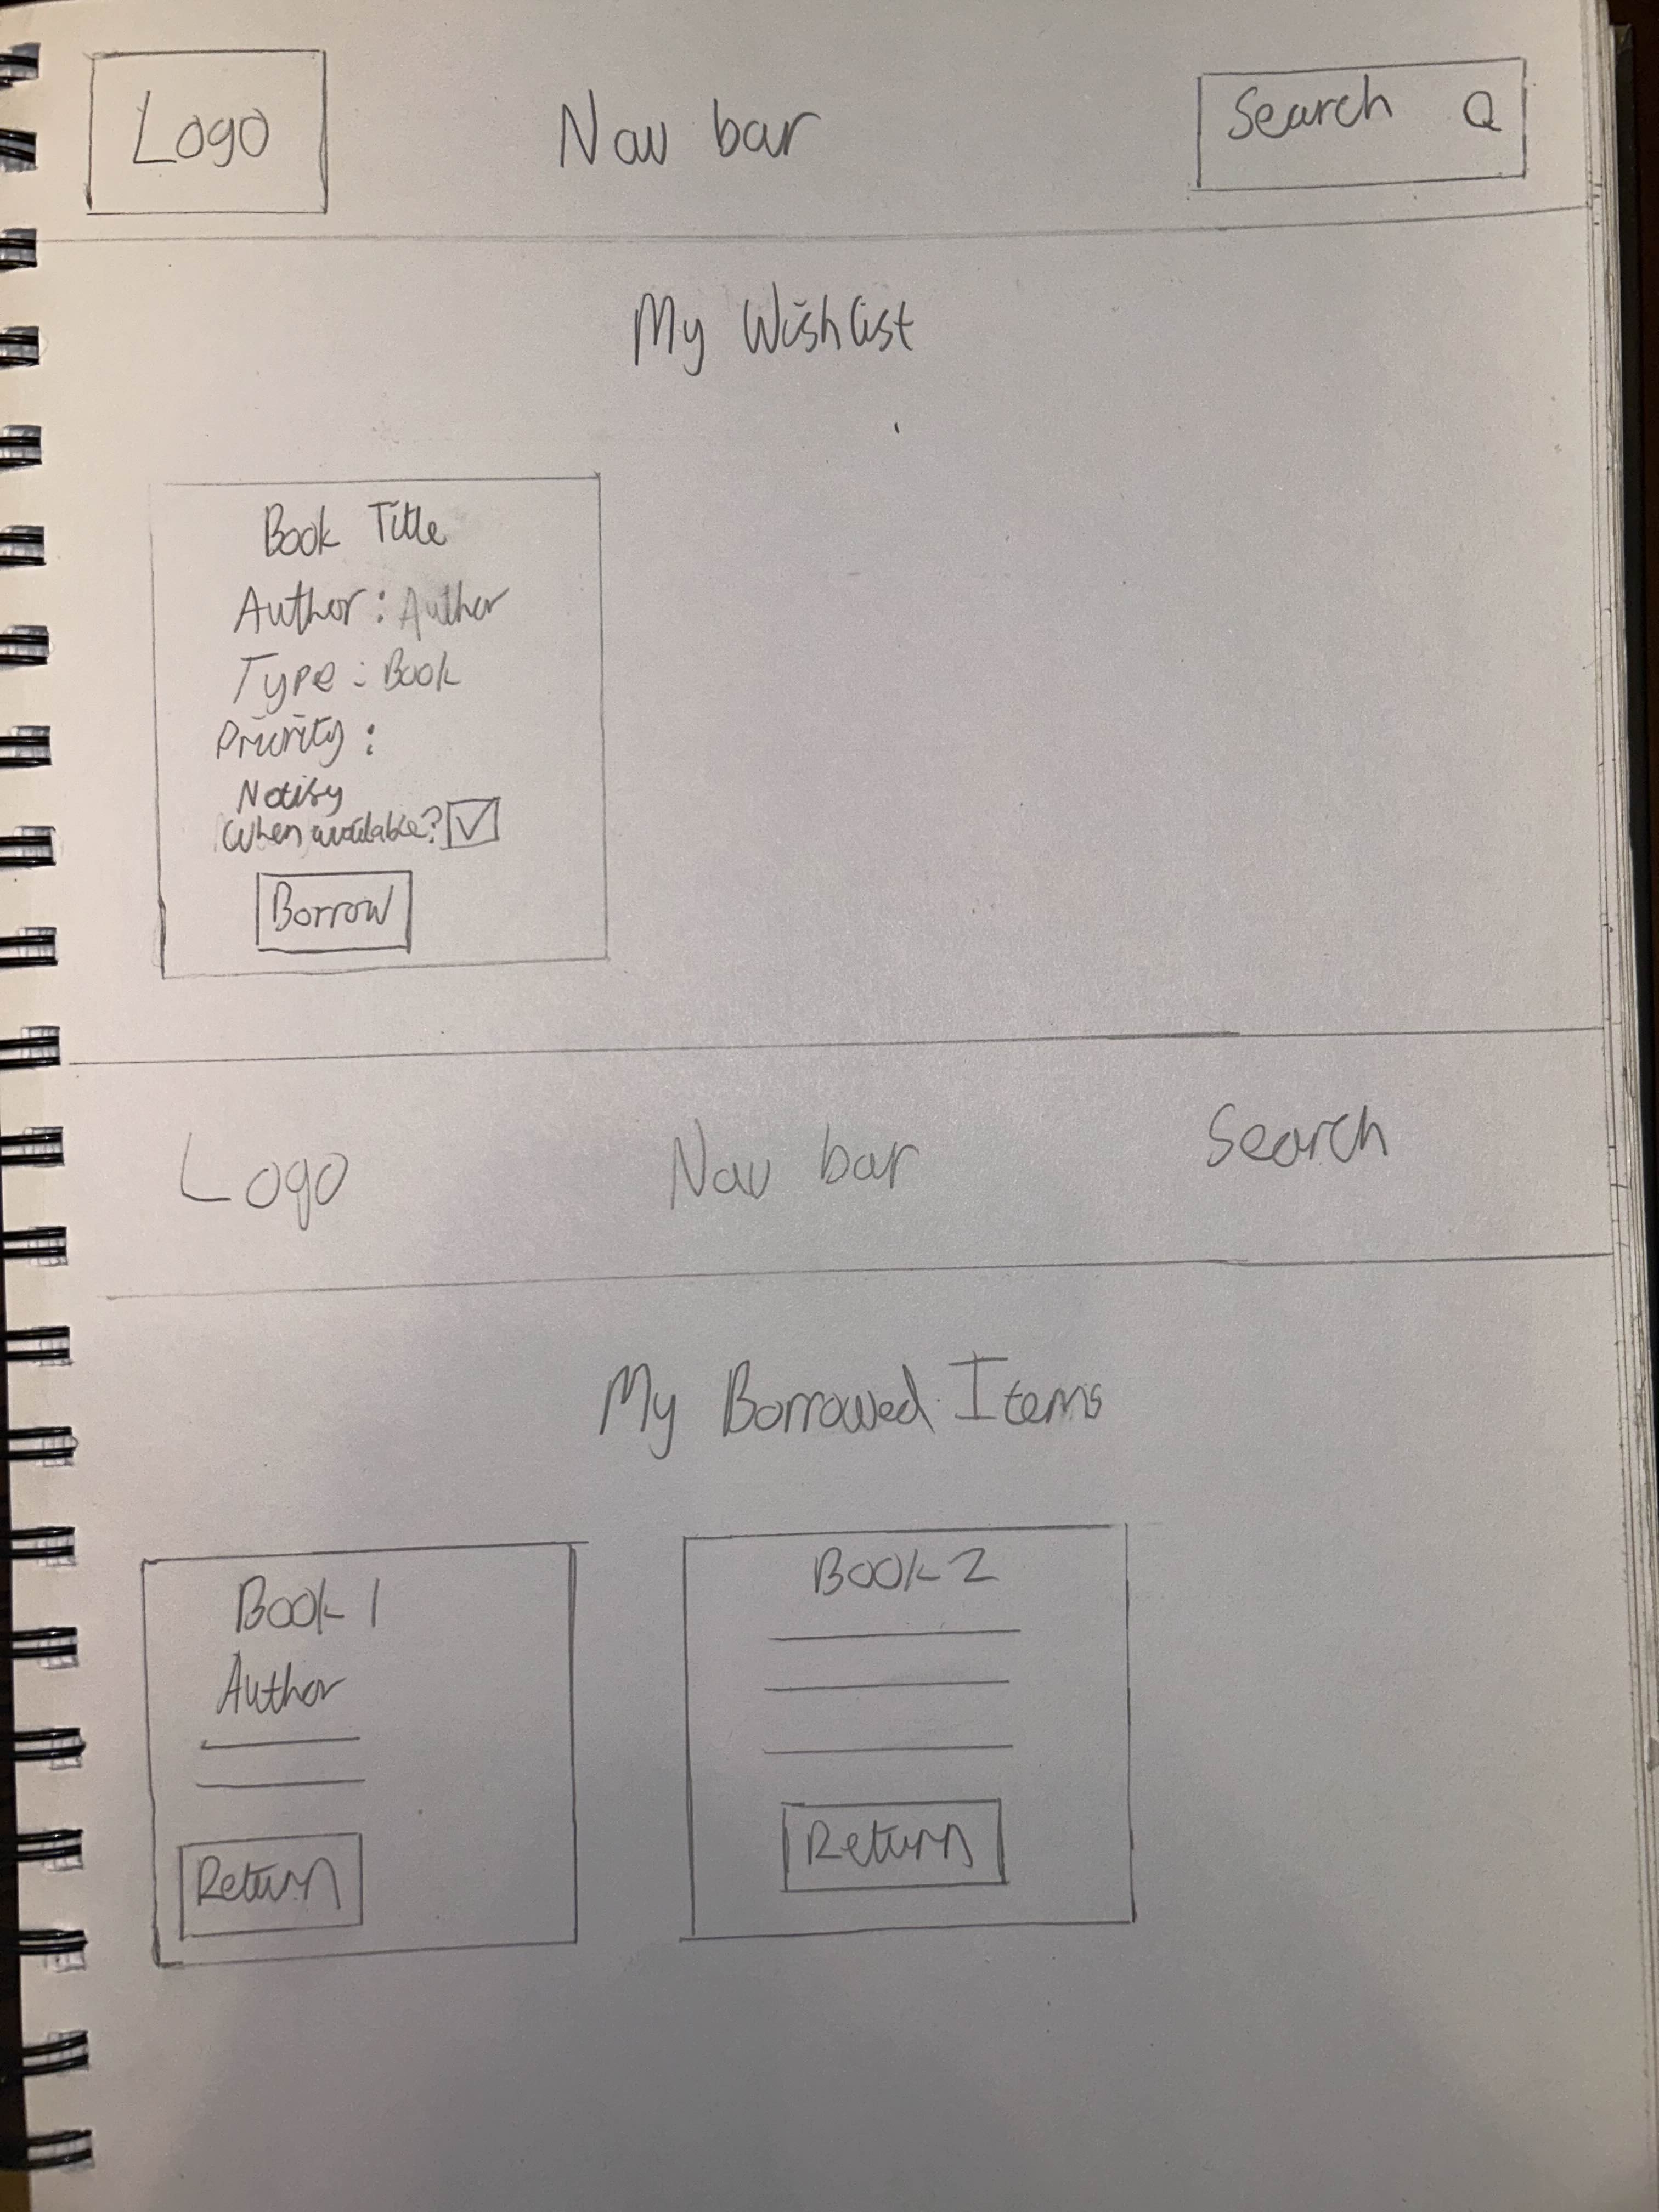 Logo Nav bar Search
My Wishlist
Book Title
Author: Author
Type: Book
Priority:
Notify
When available?
Borrow
Logo Nav bar Search
My Borrowed Items
Book 1 Book 2
Author
Return Return